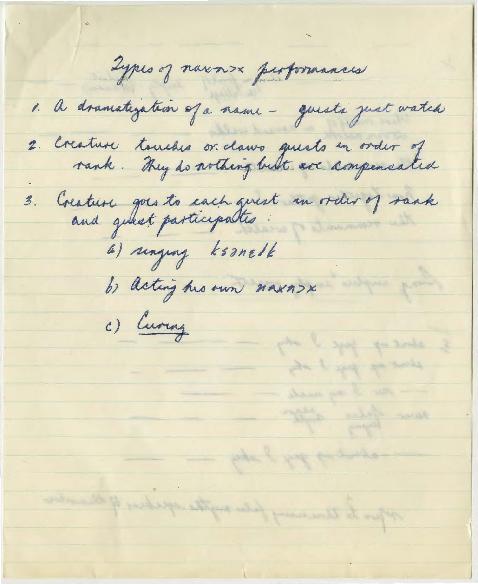 Types of naxnɔx performances
1. A dramatization of a name – guests just watch
2. Creature touches or claws guests in order of
rank. They do nothing but are compensated
3. Creature goes to each guest in order of rank
and guest participates:
a) singing
b) Acting his own naxnɔx
c) Curing